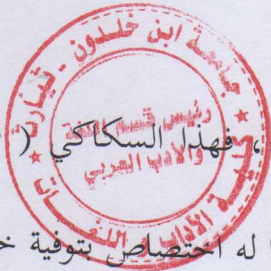 جامعة ابن خلدون - تيارت
رئيس قسم اللغة
والأدب العربي
كلية الآداب و اللغات
، فهذا السكاكي (
له اختصاص بتوفية خ